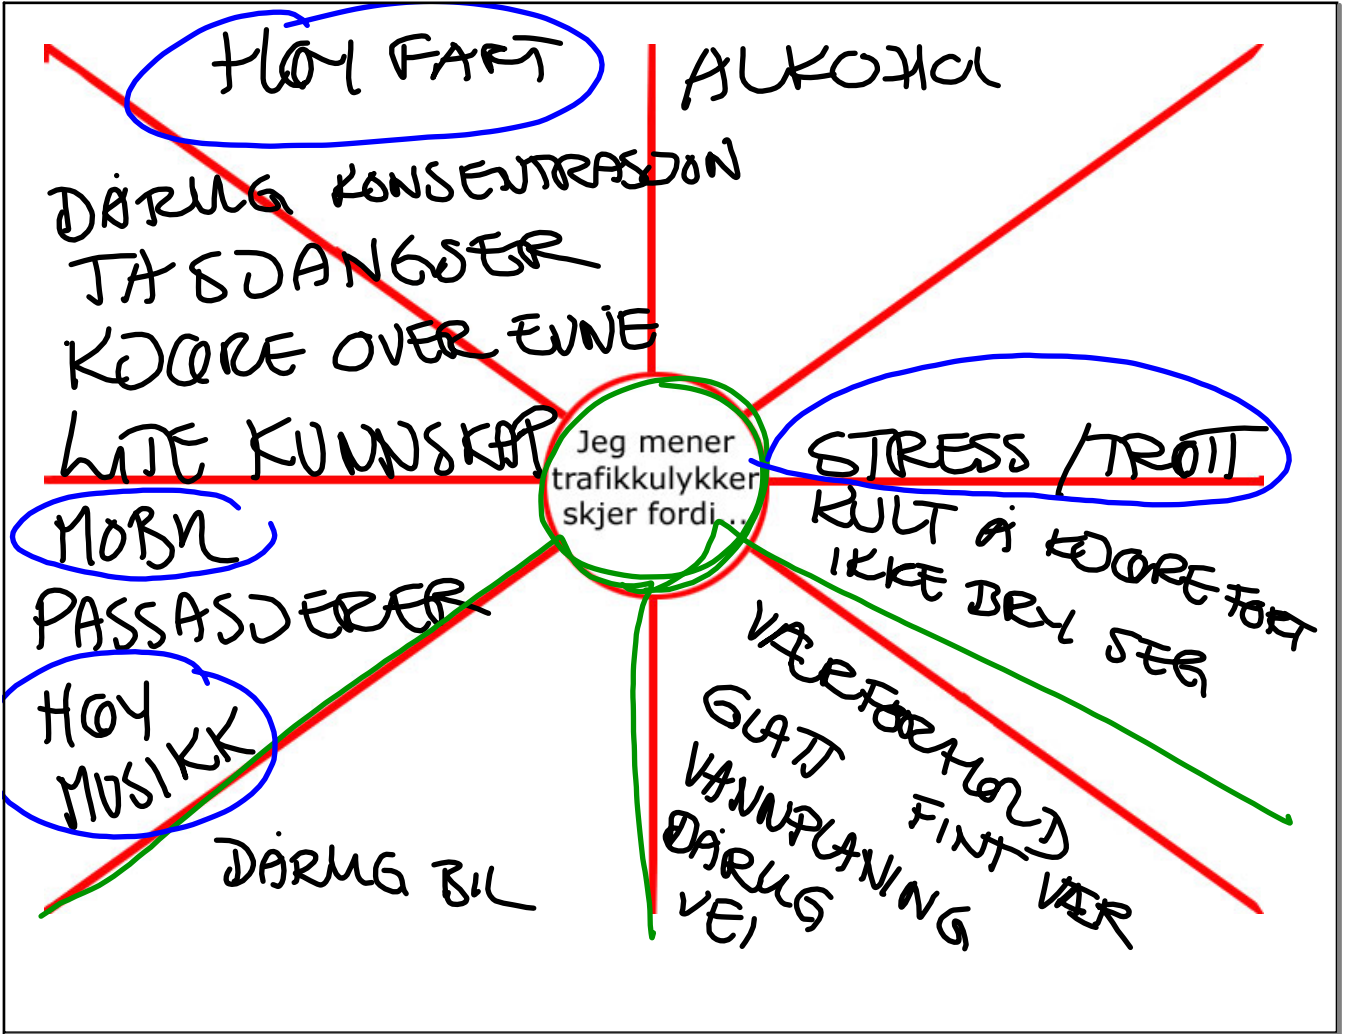 HØY FART
ALKOHOL
DÅRLIG KONSENTRASJON
TA SJANGSER
KJØRE OVER EVNE
LITE KUNNSKAP
Jeg mener
trafikkulykker
skjer fordi ...
STRESS / TRØTT
KULT Å KJØRE FORT
IKKE BRY SEG
MOBIL
PASSASJERER
HØY
MUSIKK
DÅRLIG BIL
VÆRFORHOLD
GLATT FINT VÆR
VANNPLANING
DÅRLIG
VEI